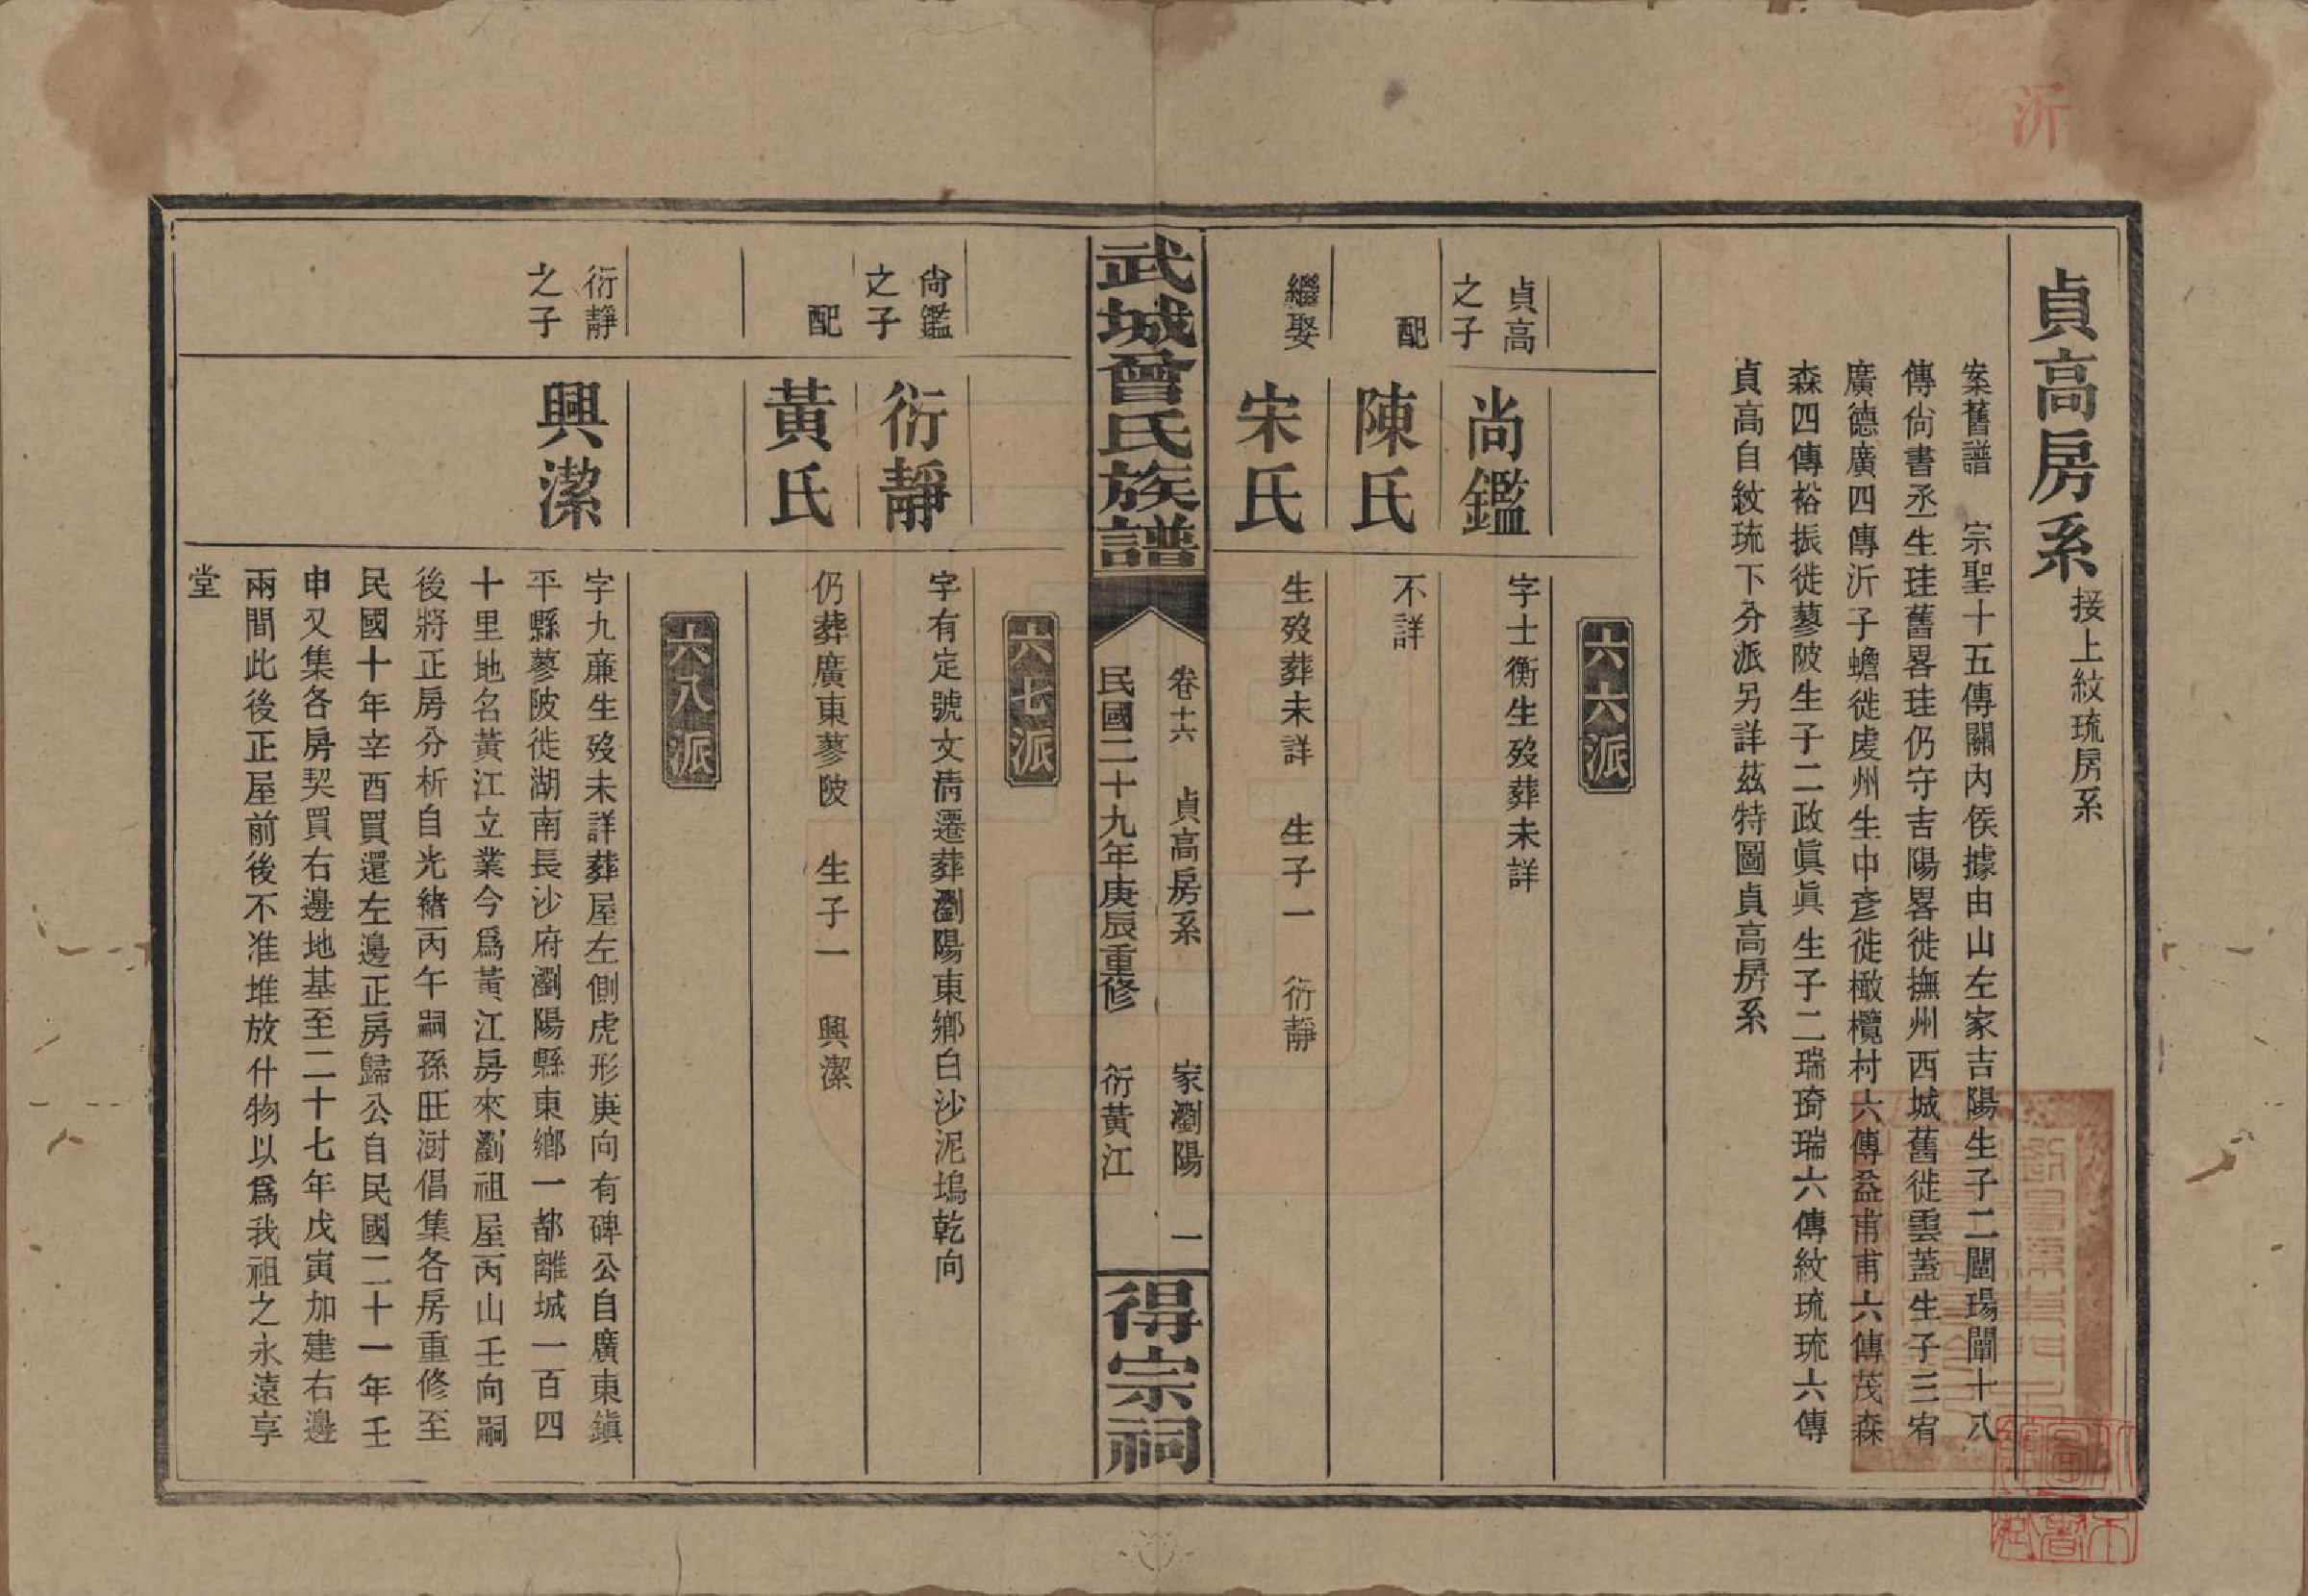 沂
貞高房系接上紋琉房系
案舊譜　宗聖十五傳關內侯據由山左家吉陽生子二闡瑒闡十八
傳尙書丞生珪舊畧珪仍守吉陽畧徙撫州西城舊徙雲蓋生子三宥
廣德廣四傳沂子蟾徙虔州生中彥徙橄欖村六傳益甫甫六傳茂森
森四傳裕振徙蓼陂生子二政眞眞生子二瑞琦瑞六傳紋琉琉六傳
貞高自紋琉下分派另詳茲特圖貞高房系
六六派
貞高之子　尚鑑　字士衡生歿葬未詳
配　陳氏　不詳
繼娶　宋氏　生歿葬未詳　生子一　衍靜
武城曾氏族譜
卷十六　貞高房系　家瀏陽　一
民國二十九年庚辰重修　衍黃江
得宗祠
六七派
尙鑑之子　衍靜　字有定號文淸遷葬瀏陽東鄉白沙泥塢乾向
配　黃氏　仍葬廣東蓼陂　生子一　興潔
六八派
衍靜之子　興潔　字九廉生歿未詳葬屋左側虎形庚向有碑公自廣東鎮
平縣蓼陂徙湖南長沙府瀏陽縣東鄉一都離城一百四
十里地名黃江立業今爲黃江房來瀏祖屋丙山壬向嗣
後將正房分析自光緖丙午嗣孫旺澍倡集各房重修至
民國十年辛酉買還左邊正房歸公自民國二十一年壬
申又集各房契買右邊地基至二十七年戊寅加建右邊
兩間此後正屋前後不准堆放什物以爲我祖之永遠享
堂